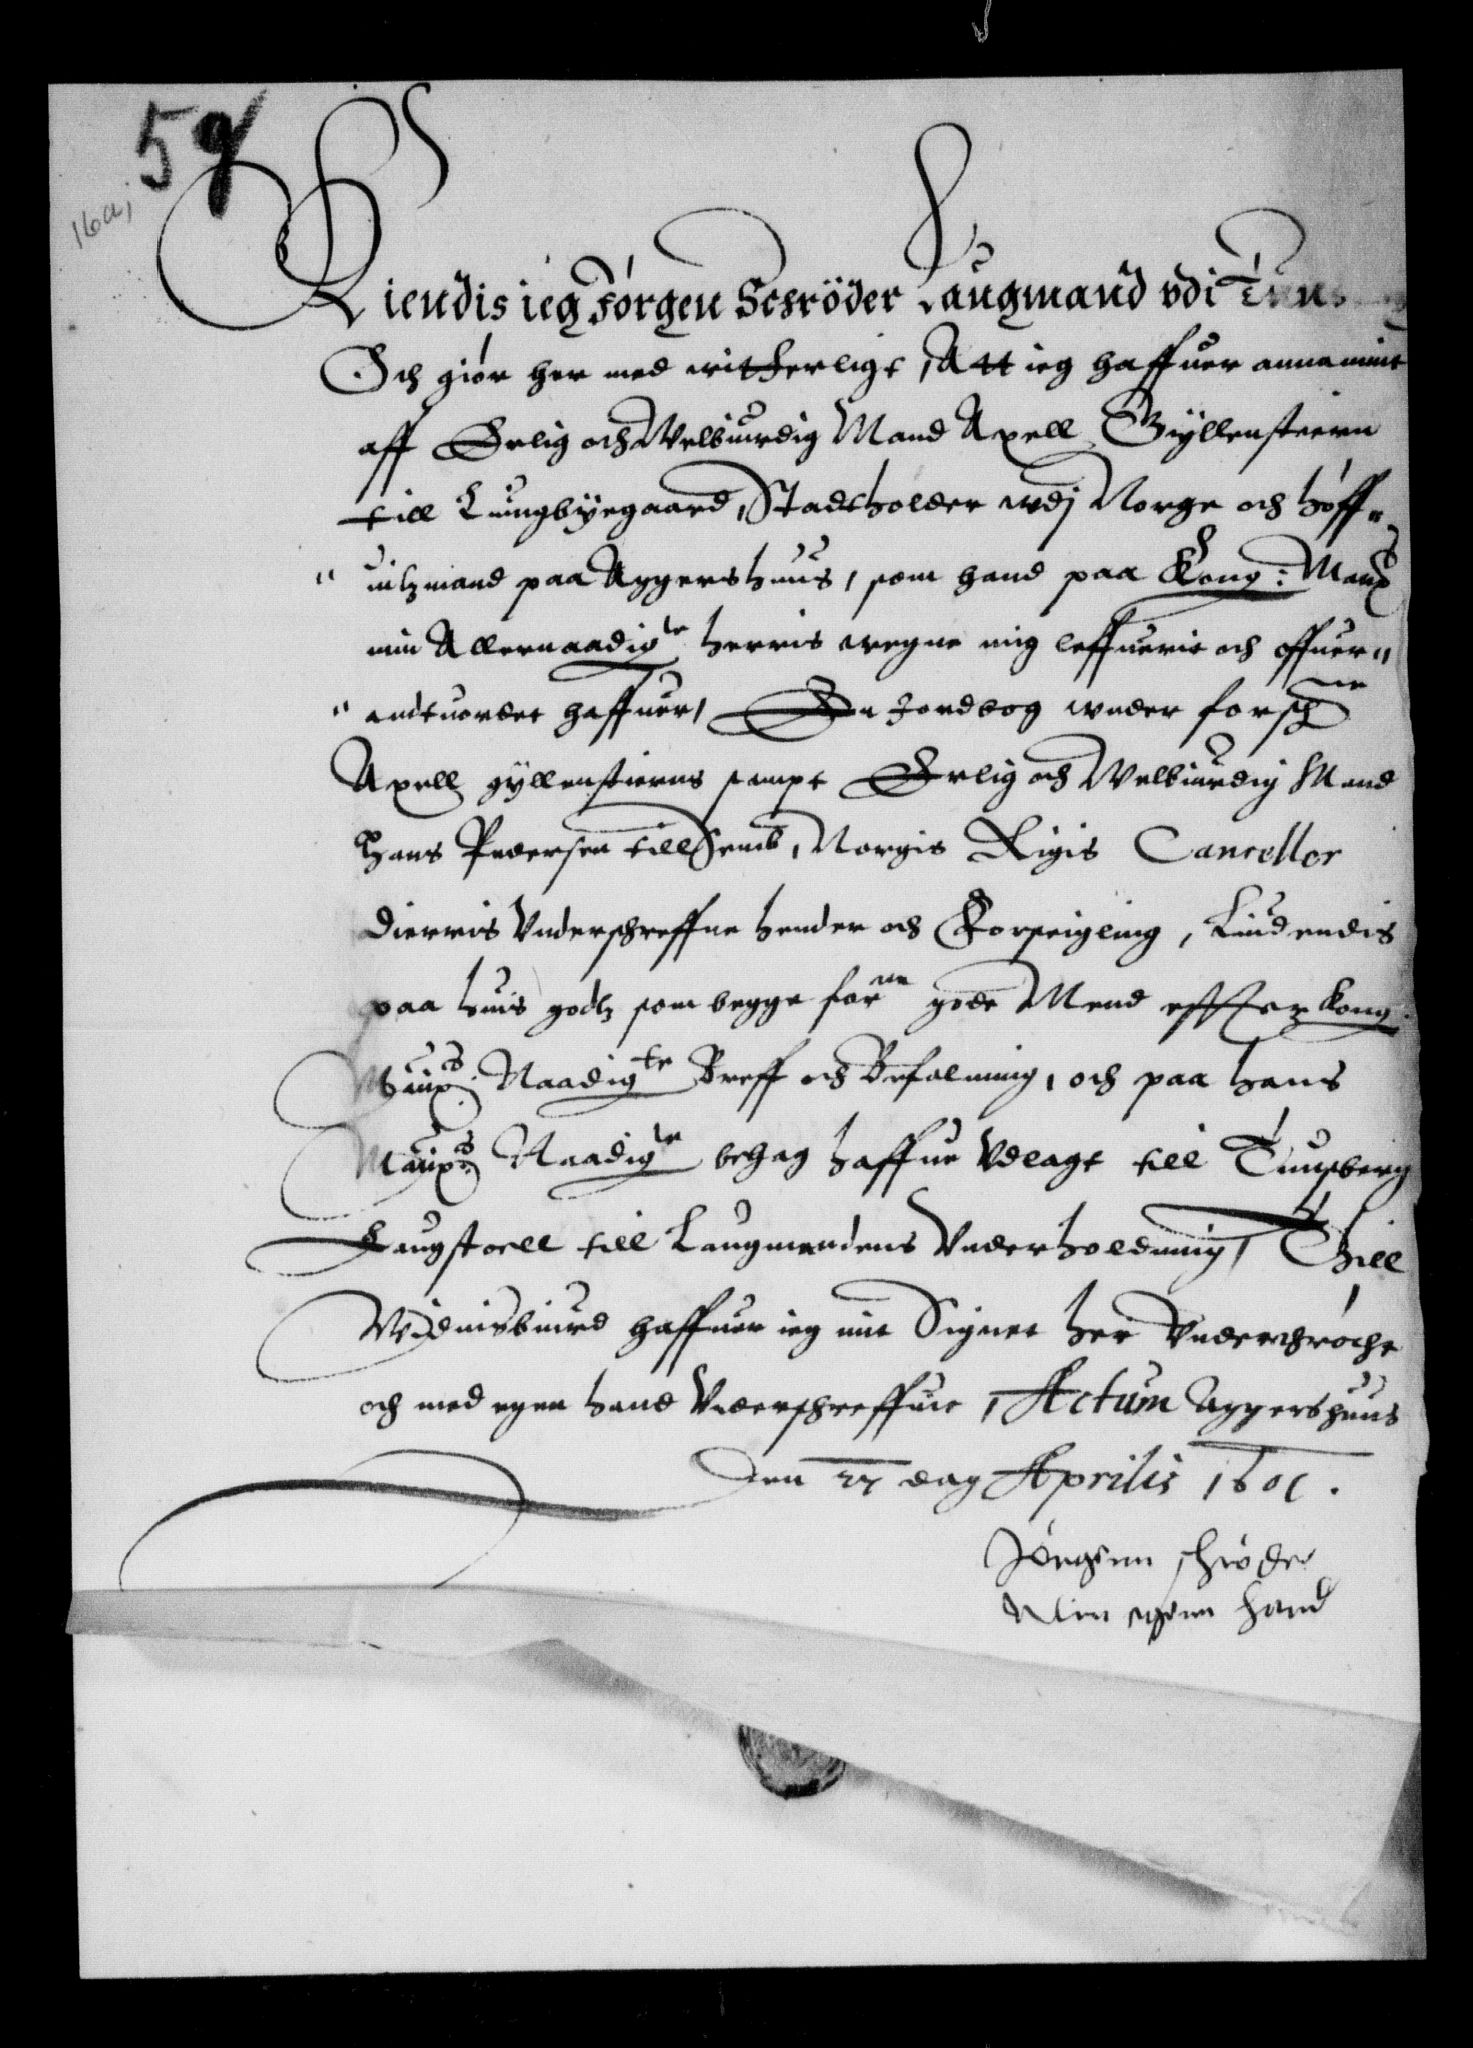 59
16a,
Kiendis ieg Jörgen Schröder Laugmand vdi Tuns
Och giör her med witherligt, Att ieg haffuer annammit
aff Erlig och Welbiurdig Mand Axell Gyllenstiern
till Liungbyegaard, Stadtholder wdj Norge och höff„
„ uitzmand paa Aggershuus, som hand paa Kong: Mayts
min Allernaadigte herris wegne mig leffuerit och offuer„
„ andtuordet haffuer, En Jordbog vnder forschne
Axell gyllenstierns sampt Erlig och Welbiurdig Mand
Hans Pedersen till Semb, Norgis Rigis Canceller
Dierris Vnderschreffne hender och Forseigling, Liudendis
paa huis godtz som begge forne gode Mend effter Kong:
Mayts: Naadigte Breff och Befalning, och paa hans
Mayts: Naadigte behag haffue Vdlagt till Tunsberg
Laugstoell till Laugmandens Vnderholdning, Thill
Widnisbiurd haffuer ieg mit Signet her Vnderthröcht
och med egen hand Vnderschreffuit, Actum Aggershuus
Den 27 dag Aprilis 1601.
Jörgenn schröder
Min egenn hand